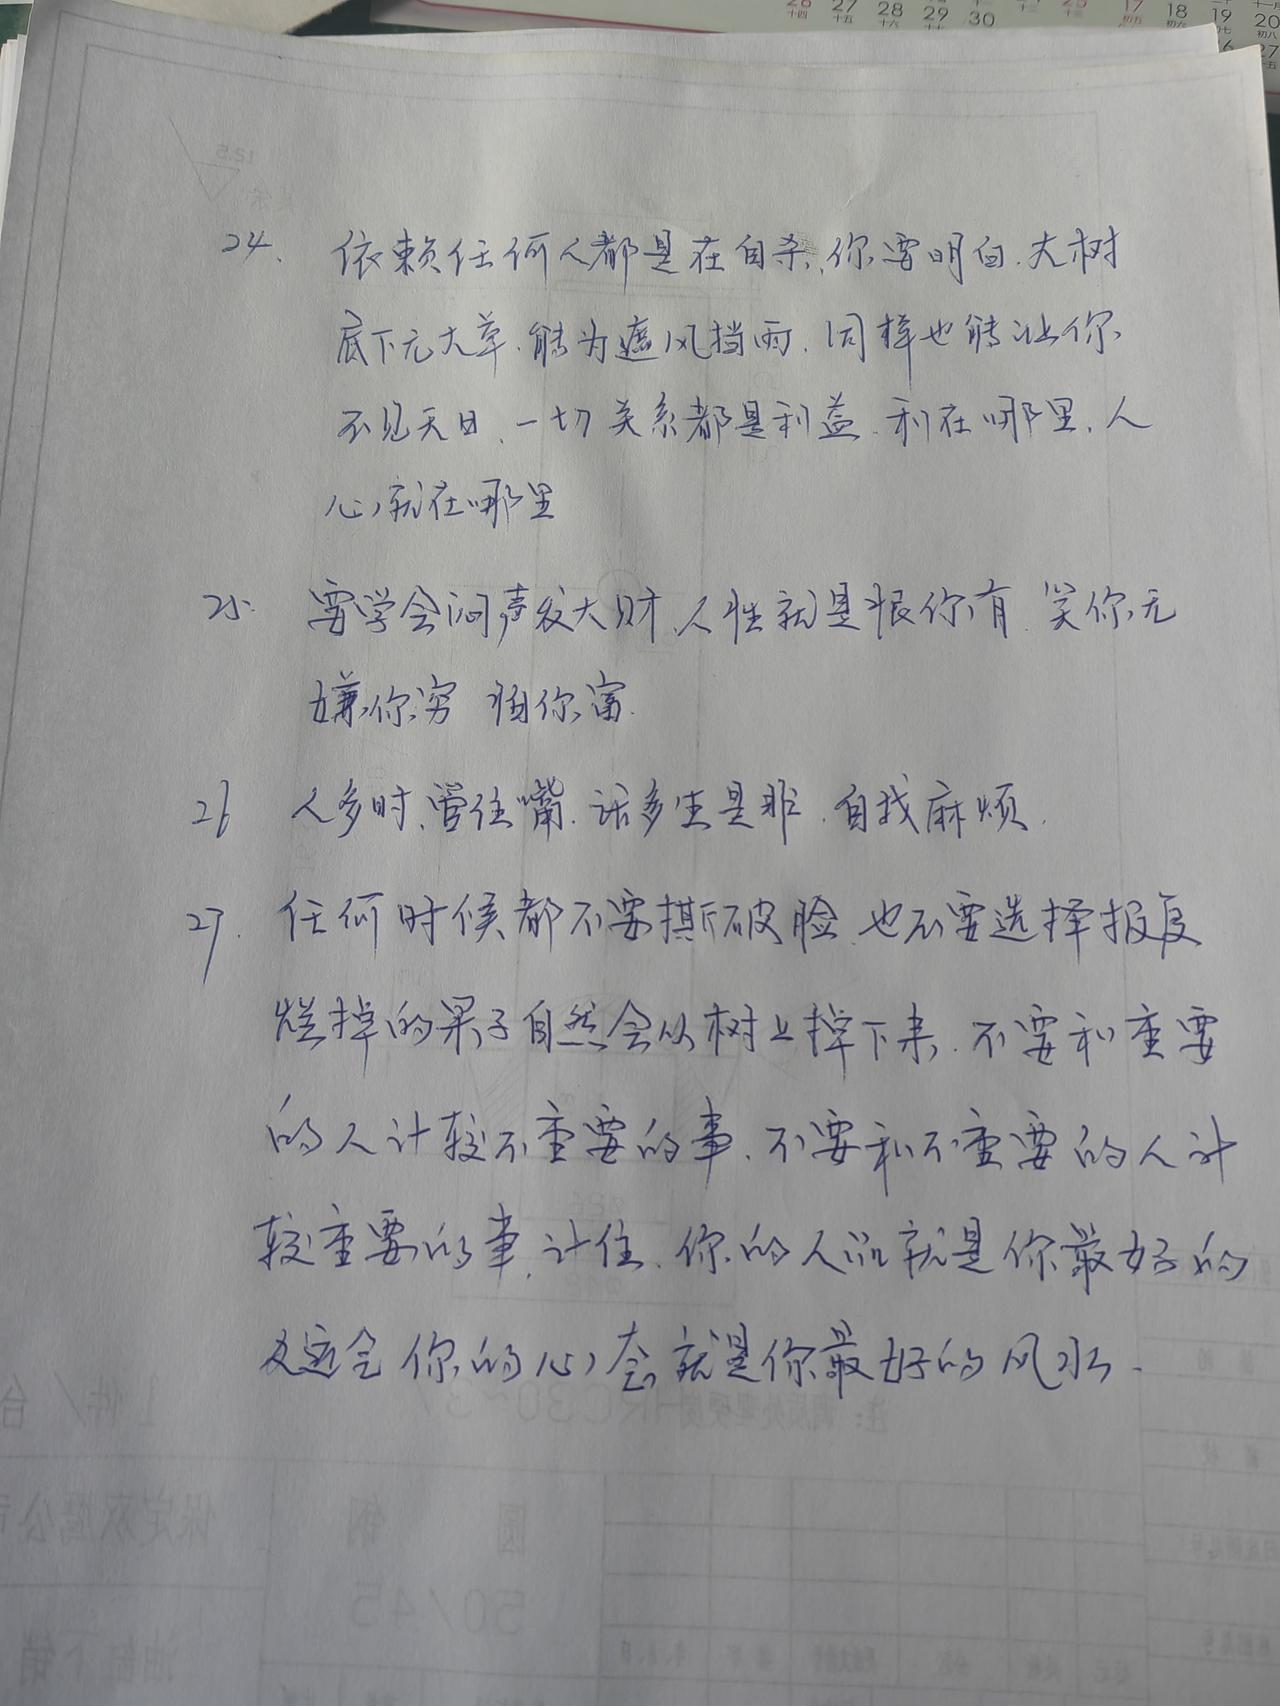 26 27 28 29 30
十四 十五 十六 十七
17 18 19 20
初五 初六 初七 初八
27
24. 依赖任何人都是在自杀,你要明白.大树
底下无大草.能为遮风挡雨.同样也能让你
不见天日.一切关系都是利益.利在哪里.人
心就在哪里
25. 要学会闷声发大财.人性就是恨你有.笑你无
嫌你穷 怕你富.
26 人多时、管住嘴.话多生是非.自找麻烦.
27. 任何时候都不要撕破脸.也不要选择报复
烂掉的果子自然会从树上掉下来.不要和重要
的人计较不重要的事.不要和不重要的人计
较重要的事.计住.你的人品就是你最好的
你的心态就是你最好的风水.
12.5
其余
注:调质处理硬度HRC30~37
1件/台
圆钢
50/45
油缸下销